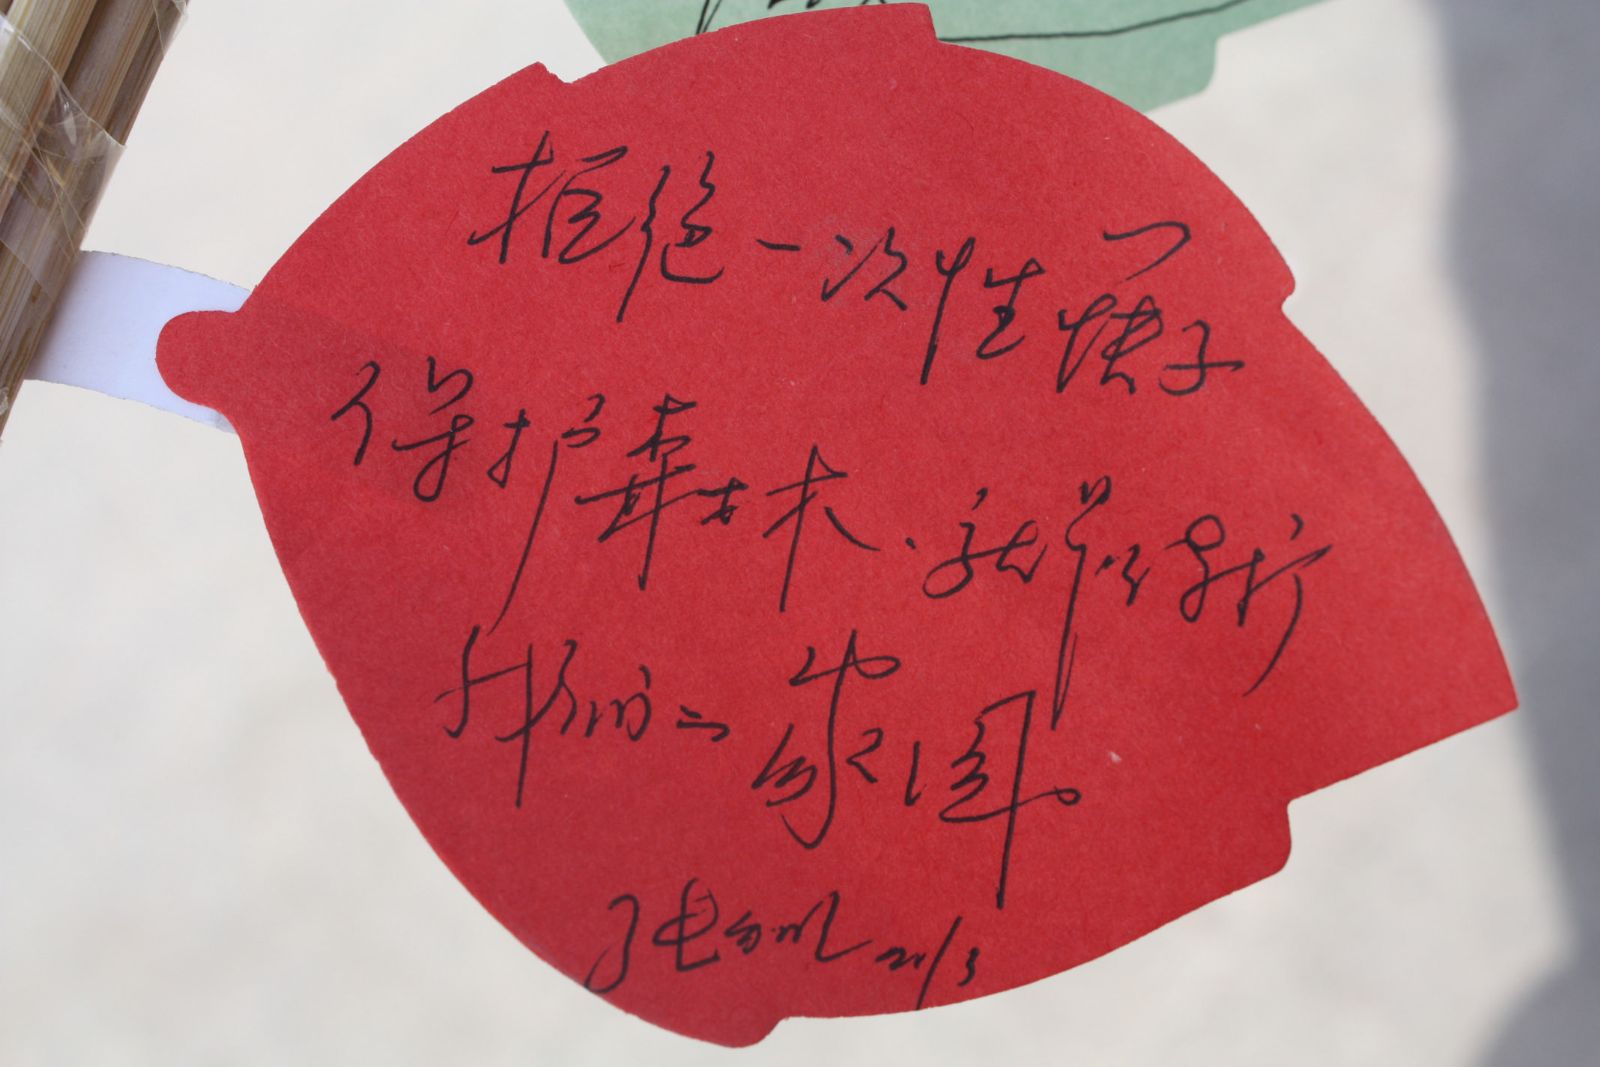 拒绝一次性筷子
保护森林.就是保护
我们的家园。
张 21/3